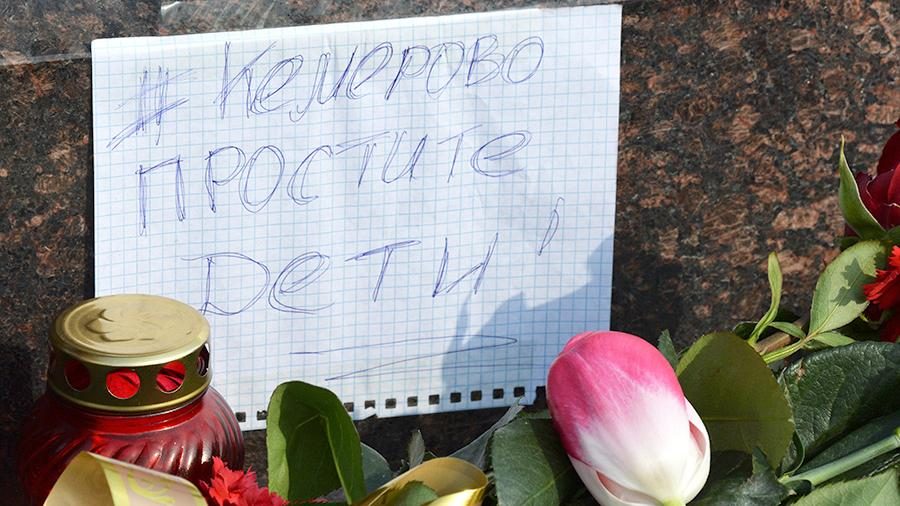 # Кемерово
ПРОСТИТЕ
ДЕТЫ